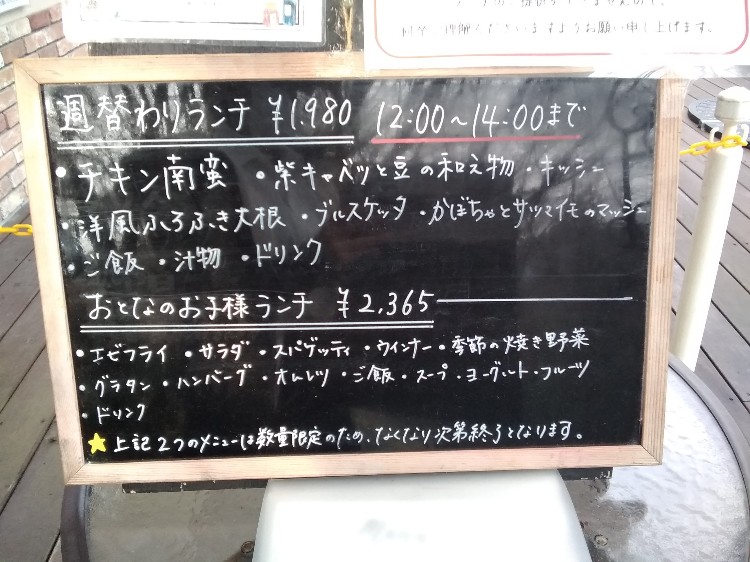 何卒ご理解くださいますようお願い申し上げます。
週替わりランチ ¥1,980 12:00～14:00まで
・チキン南蛮 ・紫キャベツと豆の和え物 ・キッシュ
・洋風ふろふき大根 ・ブルスケッタ ・かぼちゃとサツマイモのマッシュ
・ご飯 ・汁物 ・ドリンク
おとなのお子様ランチ ¥2,365
・エビフライ ・サラダ ・スパゲッティ ・ウインナー ・季節の焼き野菜
・グラタン ・ハンバーグ ・オムレツ ・ご飯 ・スープ ・ヨーグルト ・フルーツ
・ドリンク
★上記2つのメニューは数量限定のため、なくなり次第終了となります。